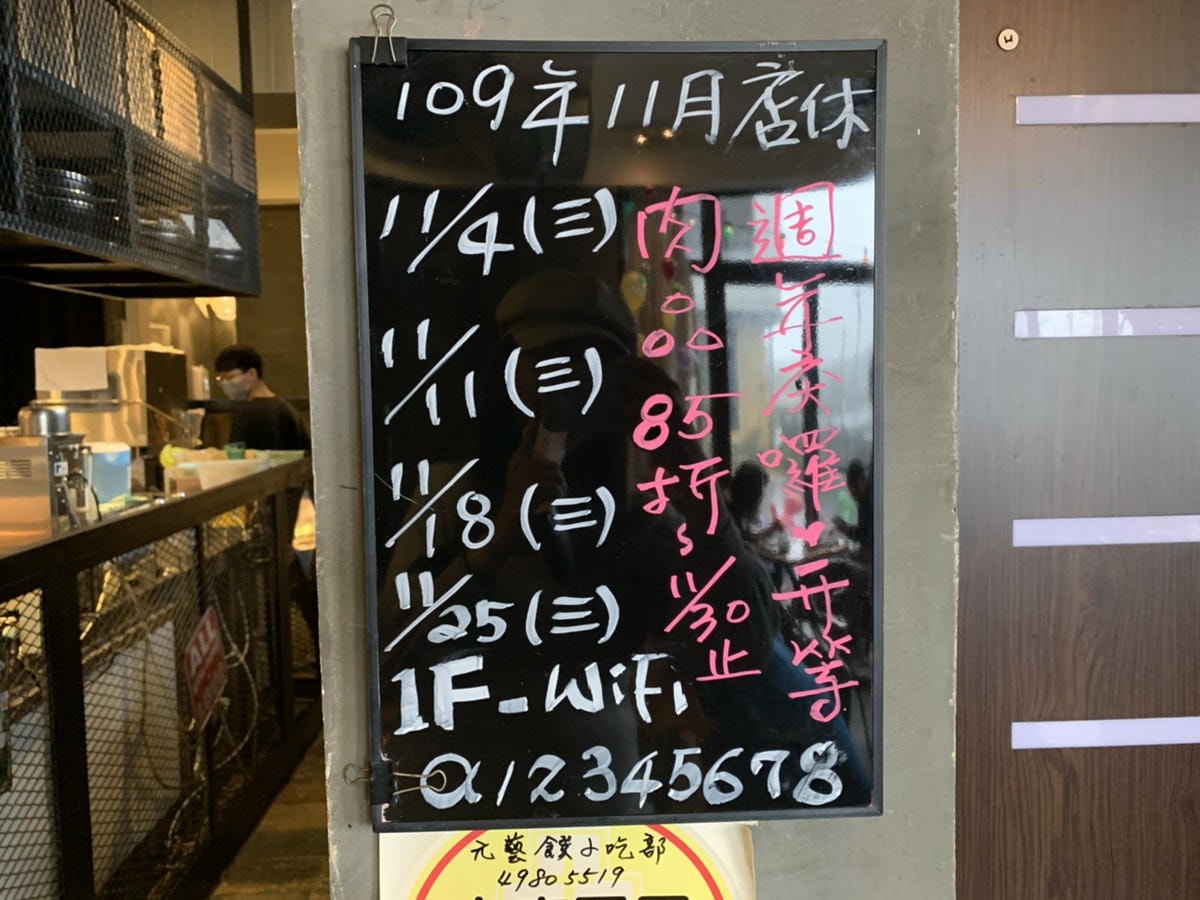 109年11月店休
11/4(三)
11/11(三)
11/18(三)
11/25(三)
1F-WiFi
a12345678
週年慶囉♥一开等
肉品85折~11/30止
元藝饌小吃部
49805519